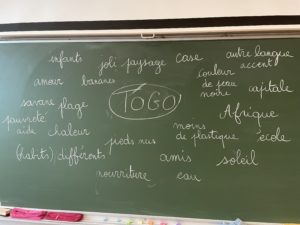 infants
joli paysage
case
autre langue
accent
amour
bananes
couleur
de peau
noire
capitale
savane
plage
TOGO
Afrique
pauvreté
aide
chaleur
moins
de plastique
école
pieds nus
(habits) différents
amis
soleil
nourriture
eau